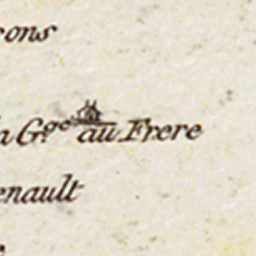 cons
la G.ge au Frere
enault